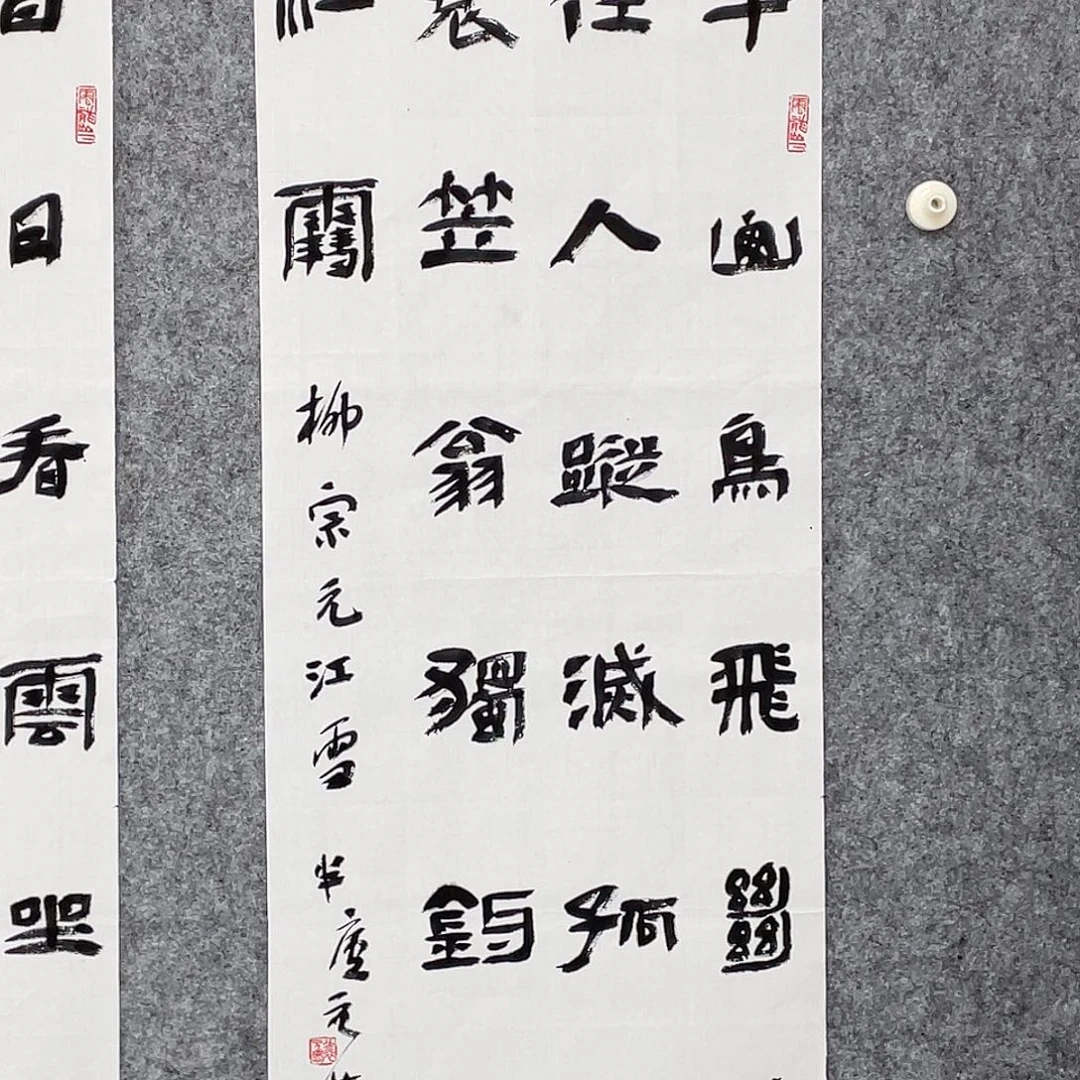 千山鳥飛絕
徑人蹤滅孤
蓑笠翁獨釣
江雪 柳宗元江雪 半廬
日看雲坐